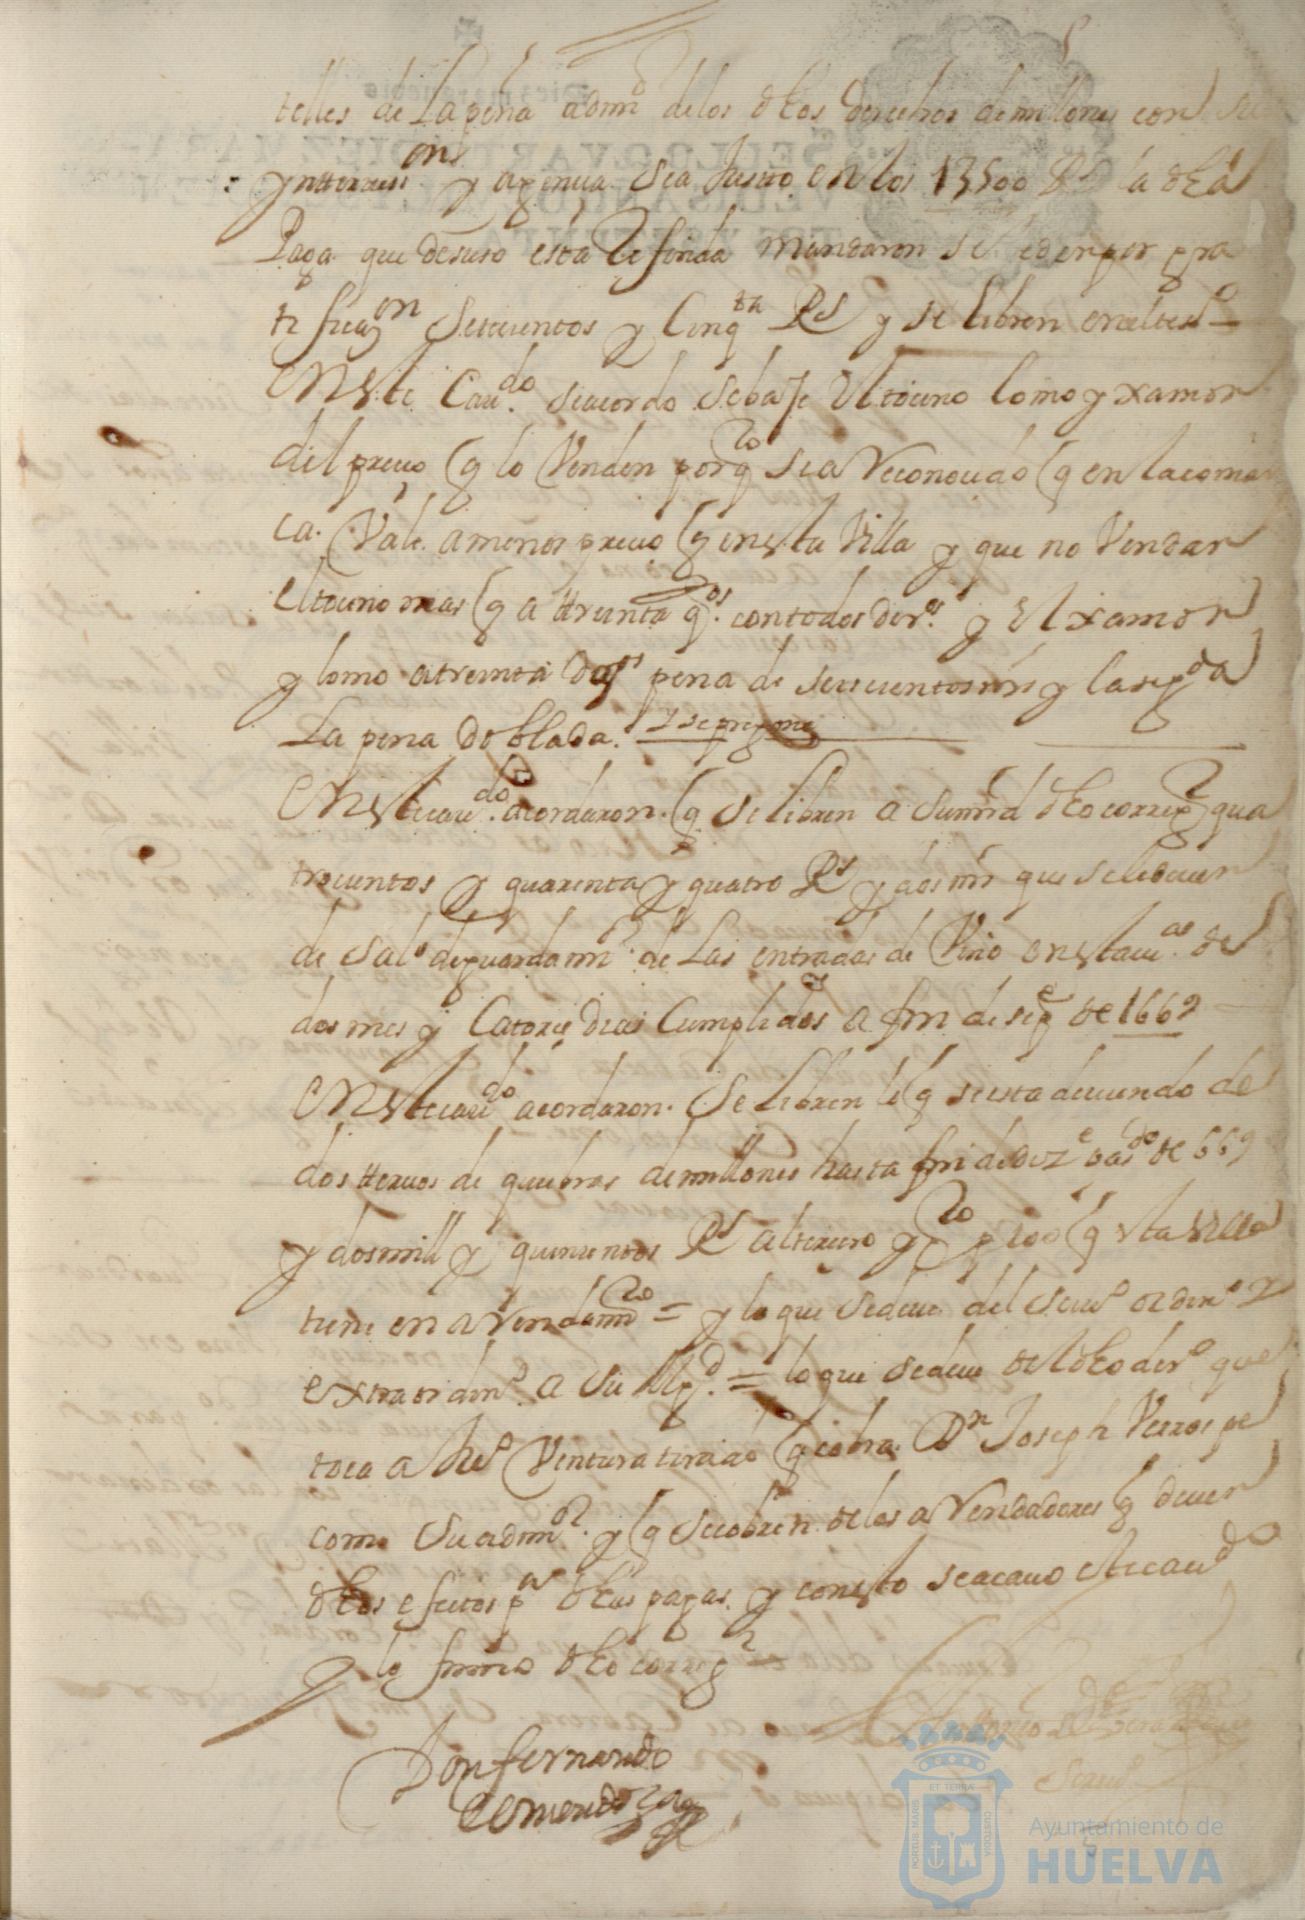 telles de la peña admr de los dhos derechos de millones con su
yntteruenson y agencia sea justo en los 13500 Rs la dha
Paga que desuso esta Referida mandaron se le den por gra
tificazon setecientos y cinqta Rs y se libren en el teso
En este Caudo se acordo se baje el tocino lomo y xamon
del precio q lo Venden porq se a Reconocido q en la comar
ca Vale a menos precio q en esta Villa y que no Vendan
el tocino mas q a ttreinta qos con todos deros y el xamon
y lomo a treinta dos pena de seiscientos mrs y la segda
La pena doblada. Y se pregone
En este caudo acordaron q se libren a su mrd dho corregr qua
trocientos y quarenta y quatro Rs y dos mrs que se le deuen
de salo de guarda mr de las entradas de Vino en esta
dos mes y Catorze dias Cumplidos a fin de sepe de 1669
En este caudo acordaron se libren lo q se esta deuiendo de
dos tterzios de quiebras de millones hasta fin de dize pasdo de 669
y dos mill y quinientos Rs al terzero q esta Villa
tiene en a Rendamto = y lo que se deue del seruo ordino y
extraordino a su Mgd = lo que se deue de el dho dero que
toca a Ventura tirado q cobra Dn Joseph
como su admor y q se cobren de los a Rendadores q deuen
dhos efectos pa dhas pagas y con esto se acauo este caudo
y lo firmo dho corregr
Don fernando
de mendoza
Antonio
Scriuo
5
PORTUS MARIS ET TERRAE CUSTODIA
Ayuntamiento de
HUELVA